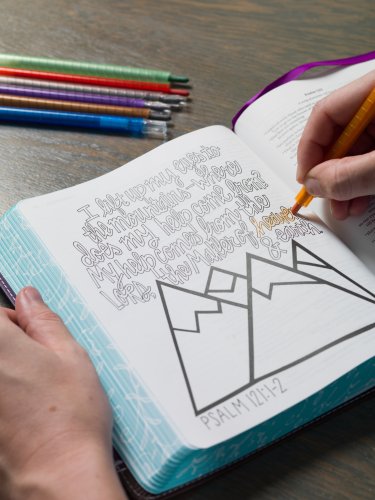 I lift up my eyes to
the mountains - where
does my help come from?
My help comes from the
Lord, the Maker of heaven
& earth.
PSALM 121:1-2